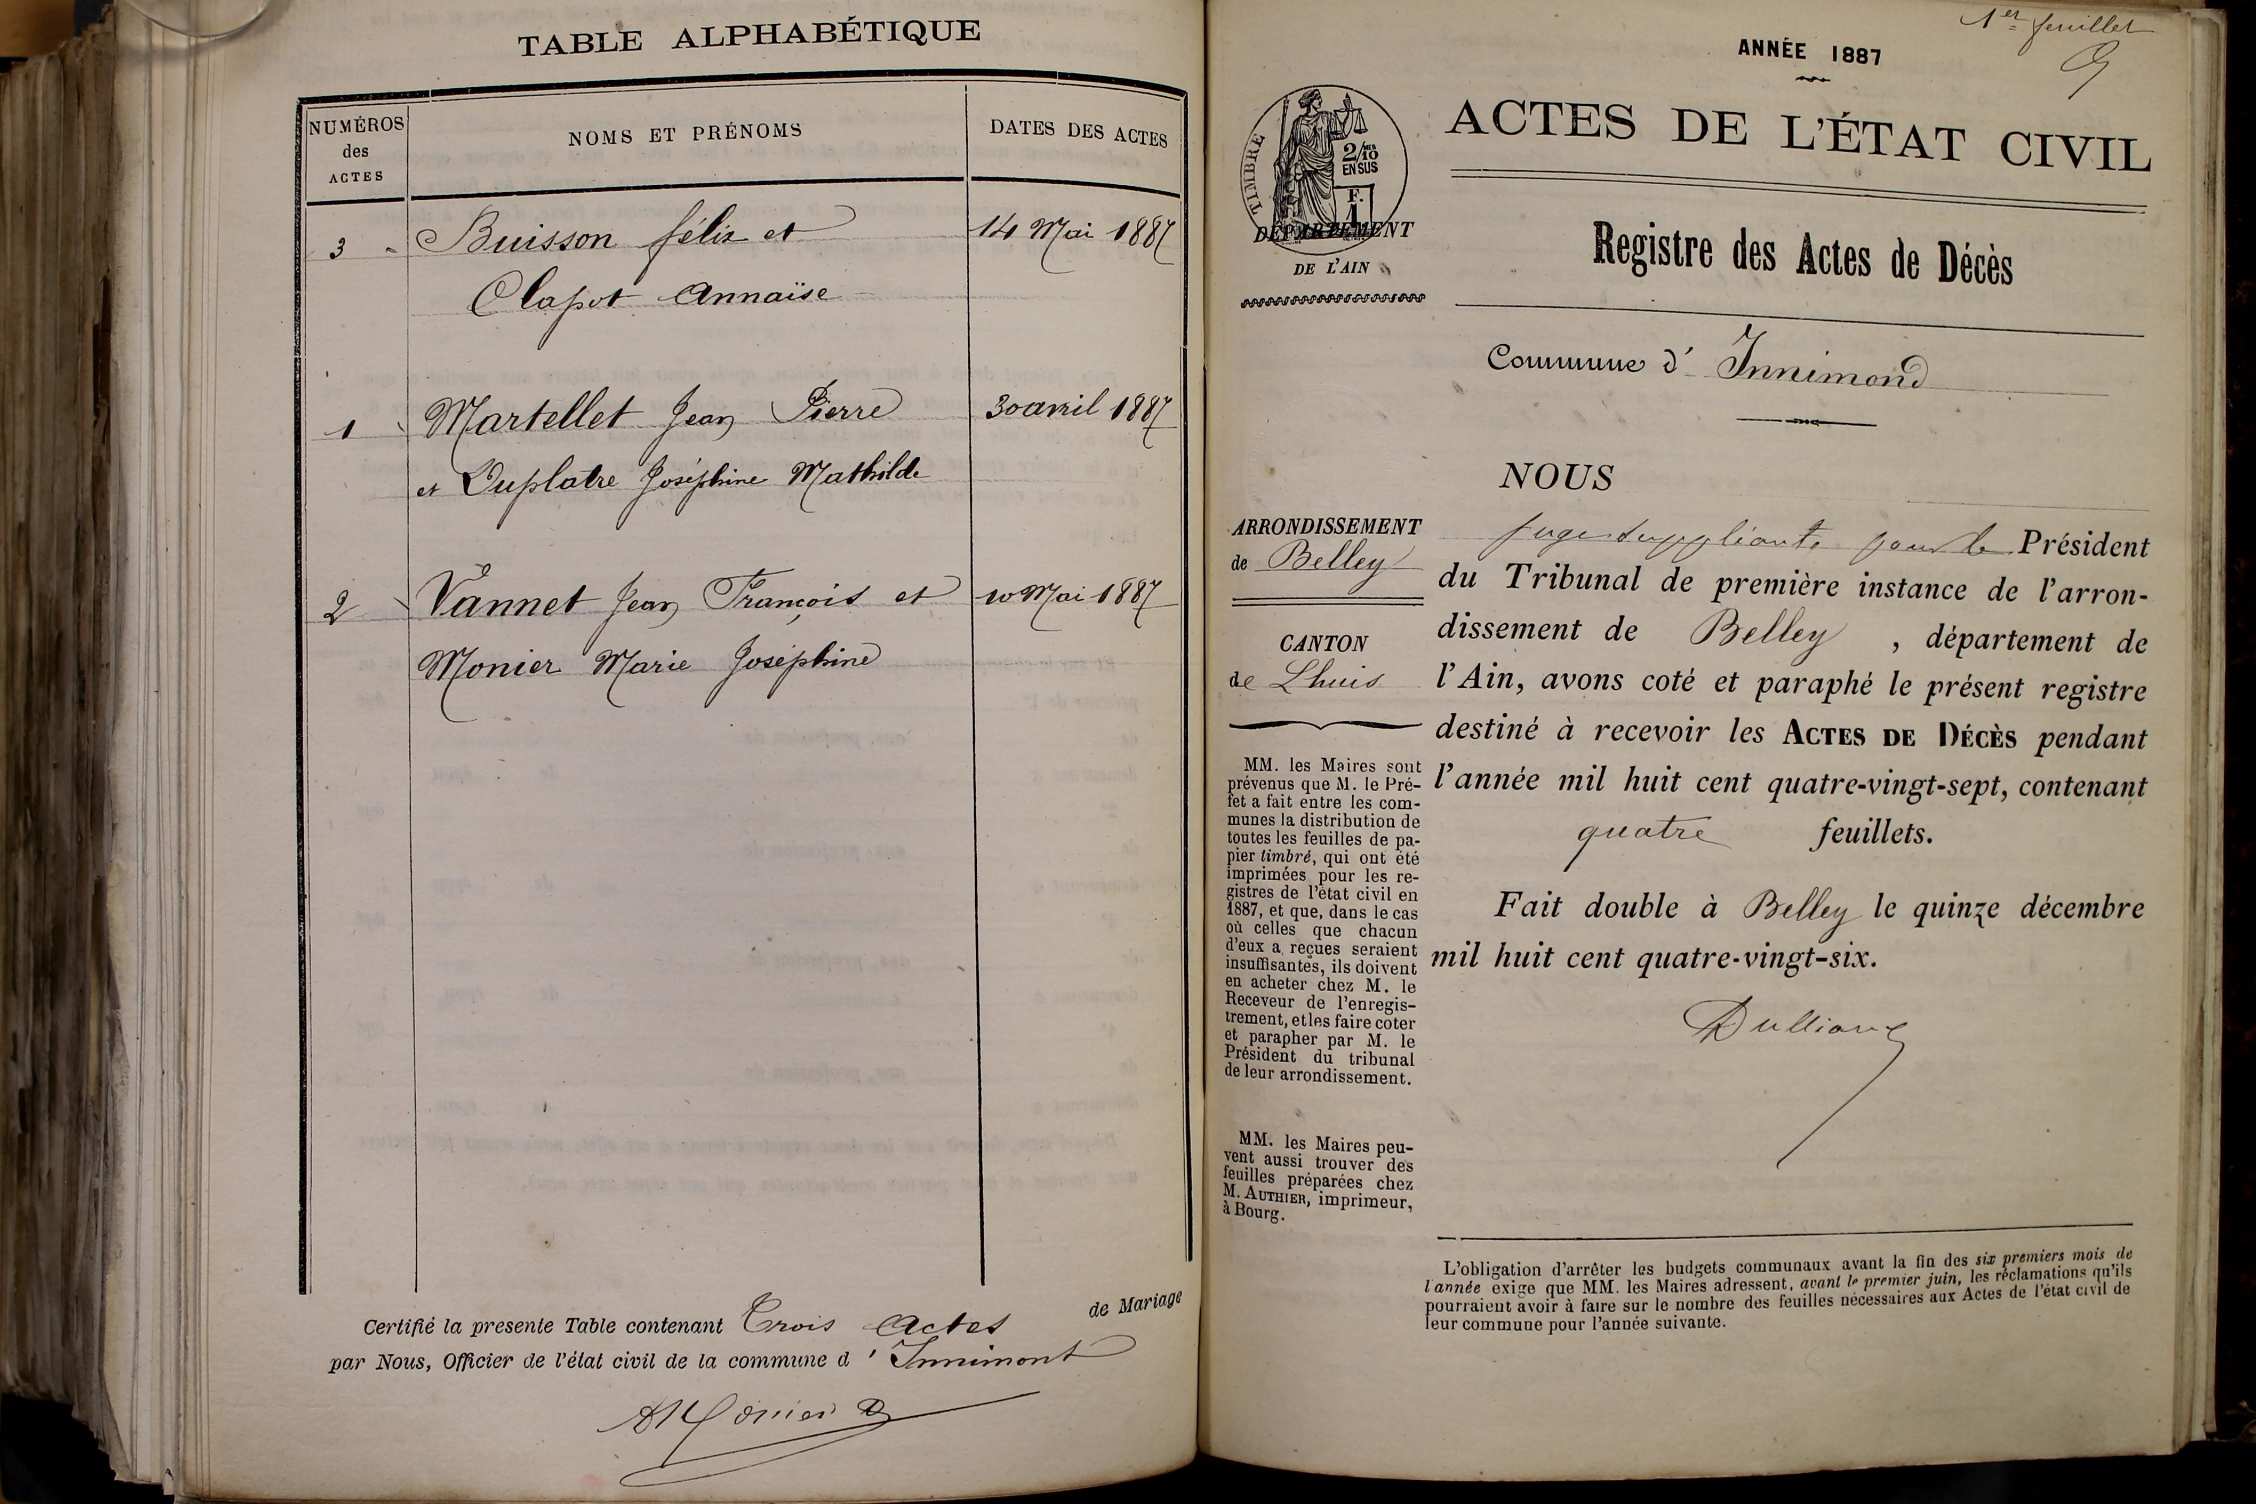 TABLE ALPHABÉTIQUE
NUMÉROS
des
ACTES
NOMS ET PRÉNOMS
DATES DES ACTES
3 Buisson félix et 14 Mai 1887
Clapot Annaïse
1 Martellet Jean Pierre 30 avril 1887
et Duplatre Joséphine Mathilde
2 Vannet Jean François et 10 Mai 1887
Monier Marie Joséphine
Certifié la presente Table contenant Trois Actes de Mariage
par Nous, Officier de l'état civil de la commune d' Innimont
AMonier
1er feuillet
ANNÉE 1887
TIMBRE
2/10
EN SUS
F.
1
DÉPARTEMENT
DE L'AIN
ACTES DE L'ÉTAT CIVIL
Registre des Actes de Décès
Commune d' Innimond
NOUS
ARRONDISSEMENT
de Belley
CANTON
de Lhuis
MM. les Maires sont
prévenus que M. le Pré-
fet a fait entre les com-
munes la distribution de
toutes les feuilles de pa-
pier timbré, qui ont été
imprimées pour les re-
gistres de l'état civil en
1887, et que, dans le cas
où celles que chacun
d'eux a reçues seraient
insuffisantes, ils doivent
en acheter chez M. le
Receveur de l'enregis-
trement, et les faire coter
et parapher par M. le
Président du tribunal
de leur arrondissement.
MM. les Maires peu-
vent aussi trouver des
feuilles préparées chez
M. AUTHIER, imprimeur,
à Bourg.
juge suppléant, pour le Président
du Tribunal de première instance de l'arron-
dissement de Belley , département de
l'Ain, avons coté et paraphé le présent registre
destiné à recevoir les ACTES DE DÉCÈS pendant
l'année mil huit cent quatre-vingt-sept, contenant
quatre feuillets.
Fait double à Belley le quinze décembre
mil huit cent quatre-vingt-six.
L'obligation d'arrêter les budgets communaux avant la fin des six premiers mois de
l'année exige que MM. les Maires adressent, avant le premier juin, les réclamations qu'ils
pourraient avoir à faire sur le nombre des feuilles nécessaires aux Actes de l'état civil de
leur commune pour l'année suivante.